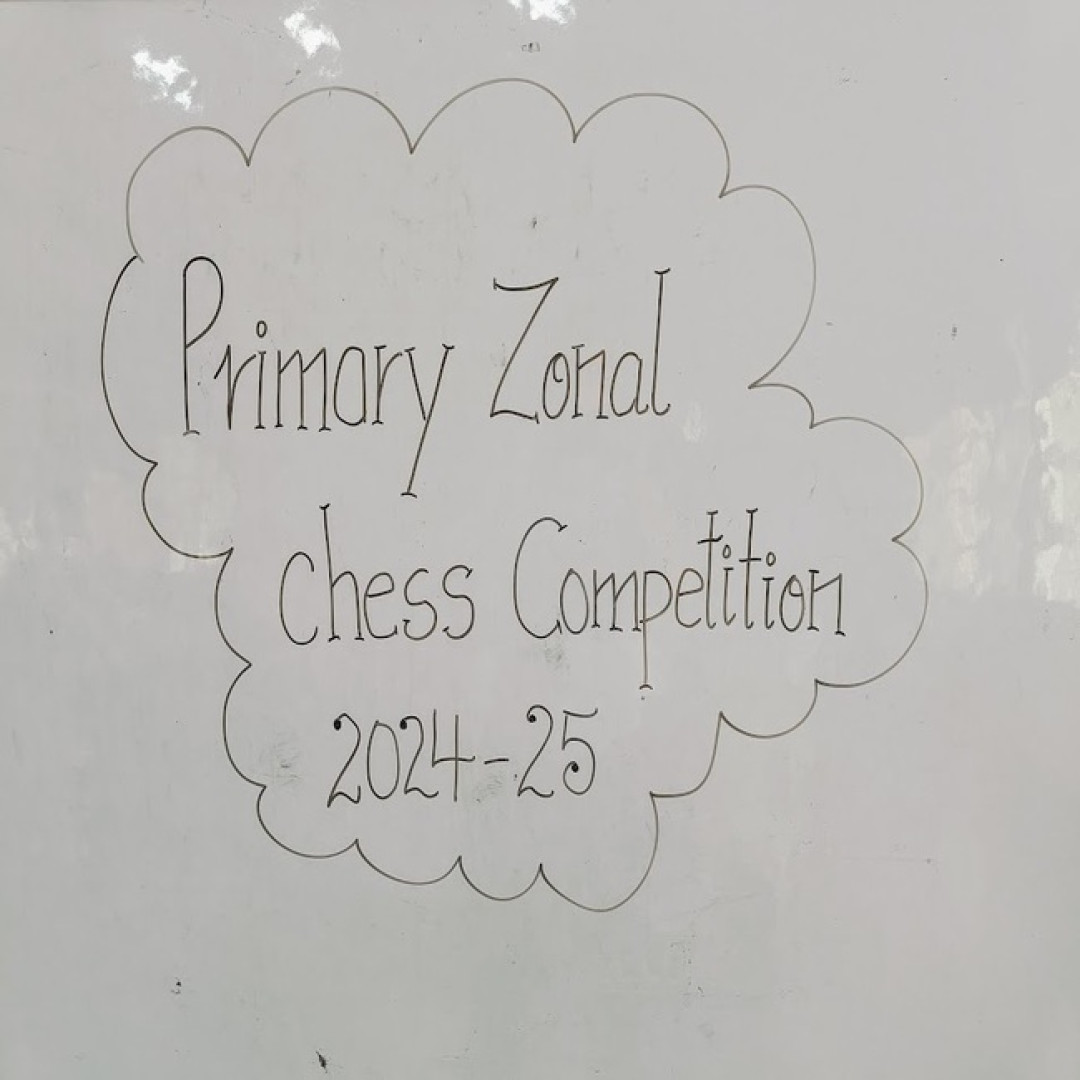 Primary Zonal
chess Competition
2024-25